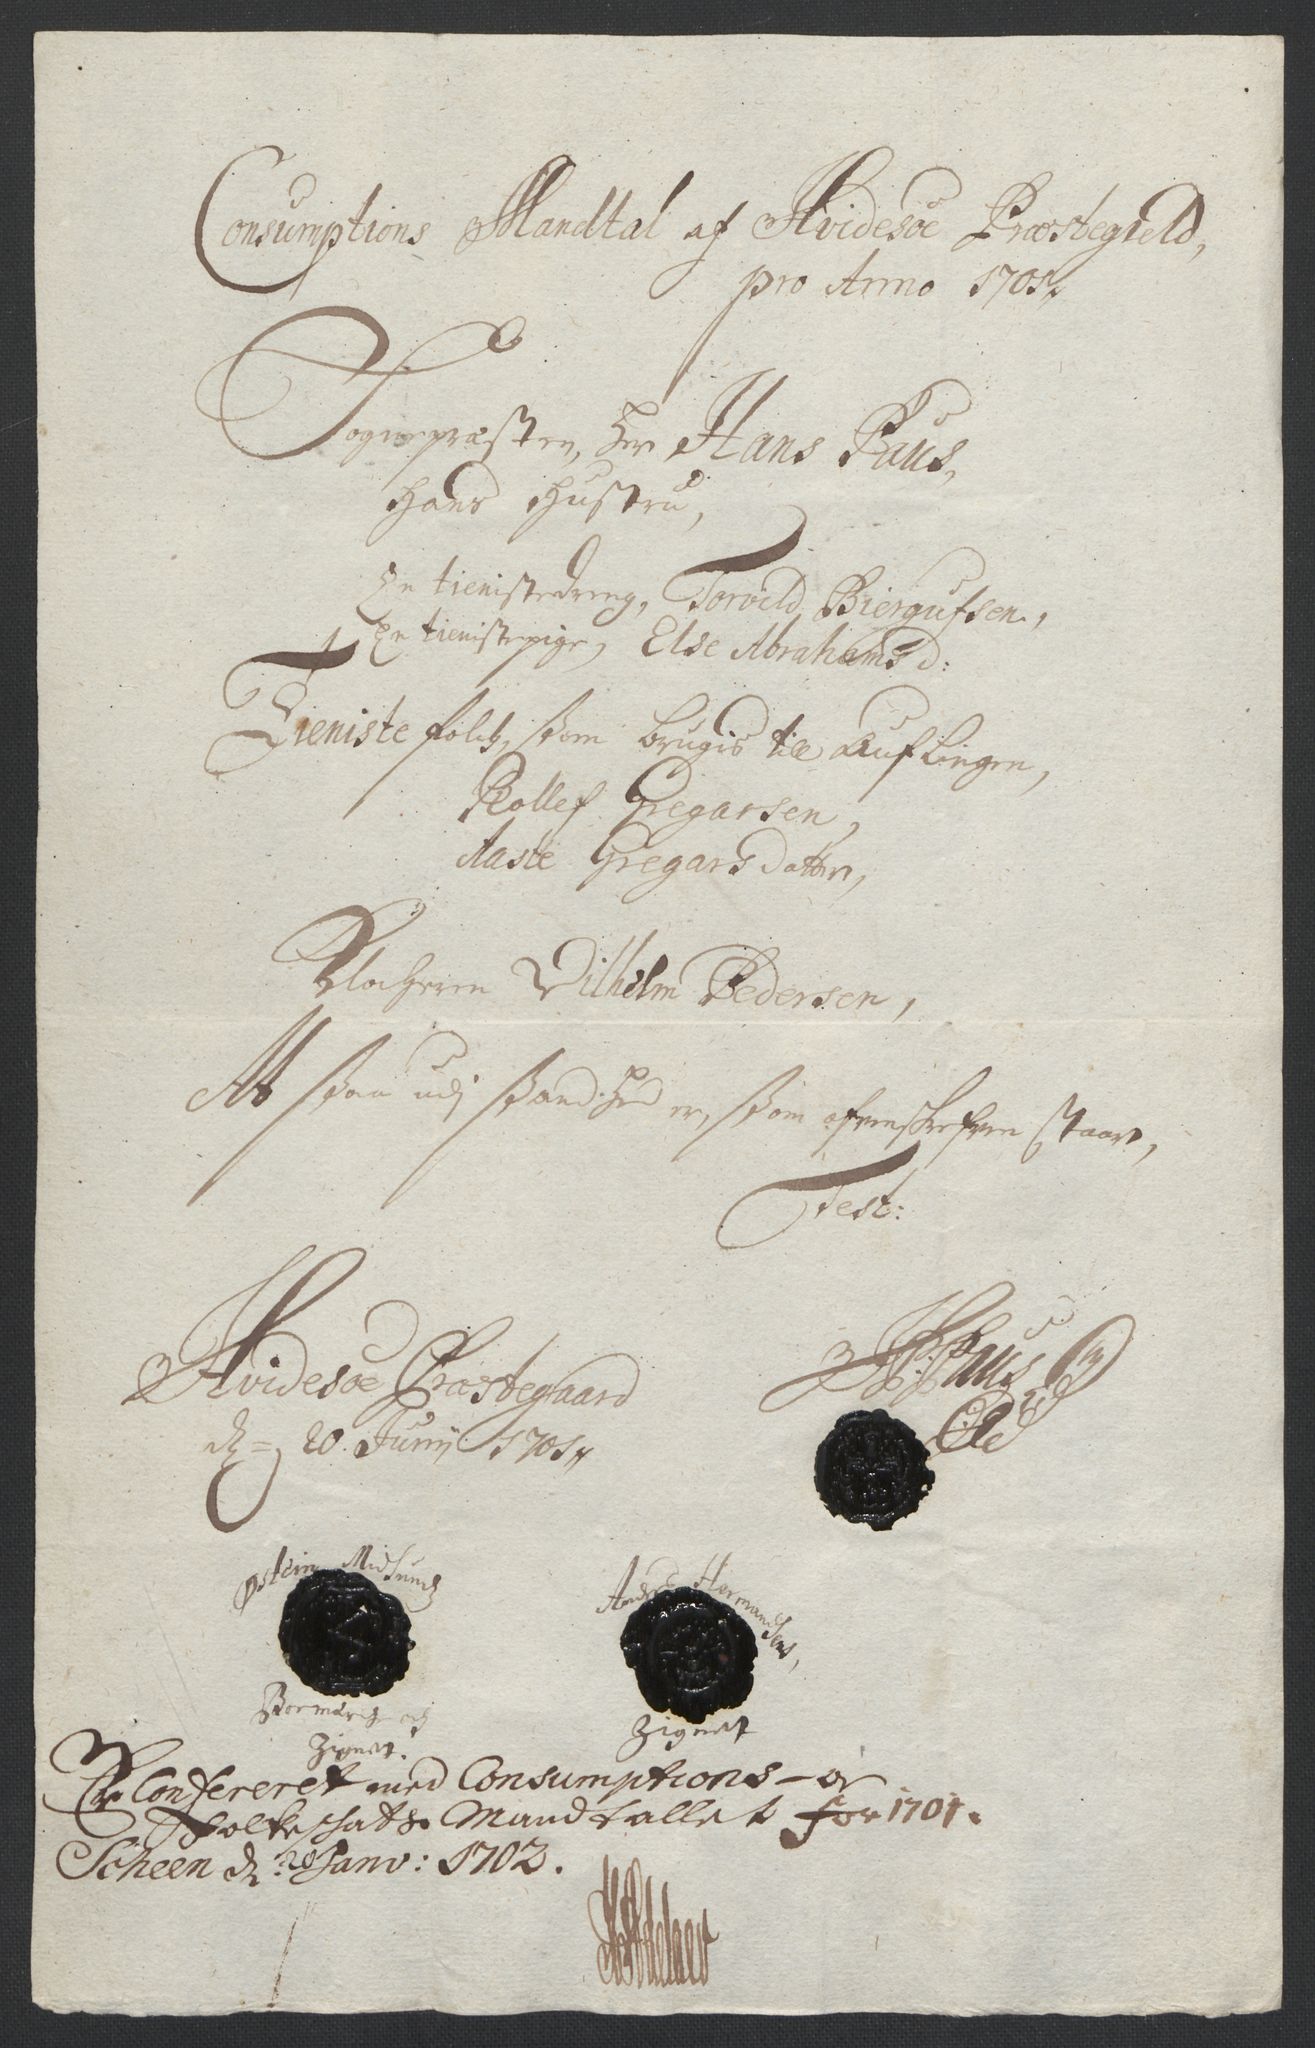 Consumptions Mandtal af Hvidesöe Præstegield,
pro Anno 1701.
Sognepræsten, Her Hans Paus,
Hans Hustru,
En tienistedreng, Torvild Biergufsen,
En tienistepige, Else Abrahams d:
Tieniste folch, som brugis till Auflingen,
Rollef Gregarsen,
Aaste Gregars datter,
Vilhelm Pedersen,
At saa udj sandhed er, som ofvenskrefven staar,
Test:
Hvidesöe Præstegaard
d. 20 Junij 1701
H: Paus
Østein Midsund
Anders Hermandsen,
Boemærche och
Zignet.
Zignet
Er Confereret med Consumptions- og
Folkeschats Mandtallet for 1701.
Scheen d. 20 Janv: 1702.